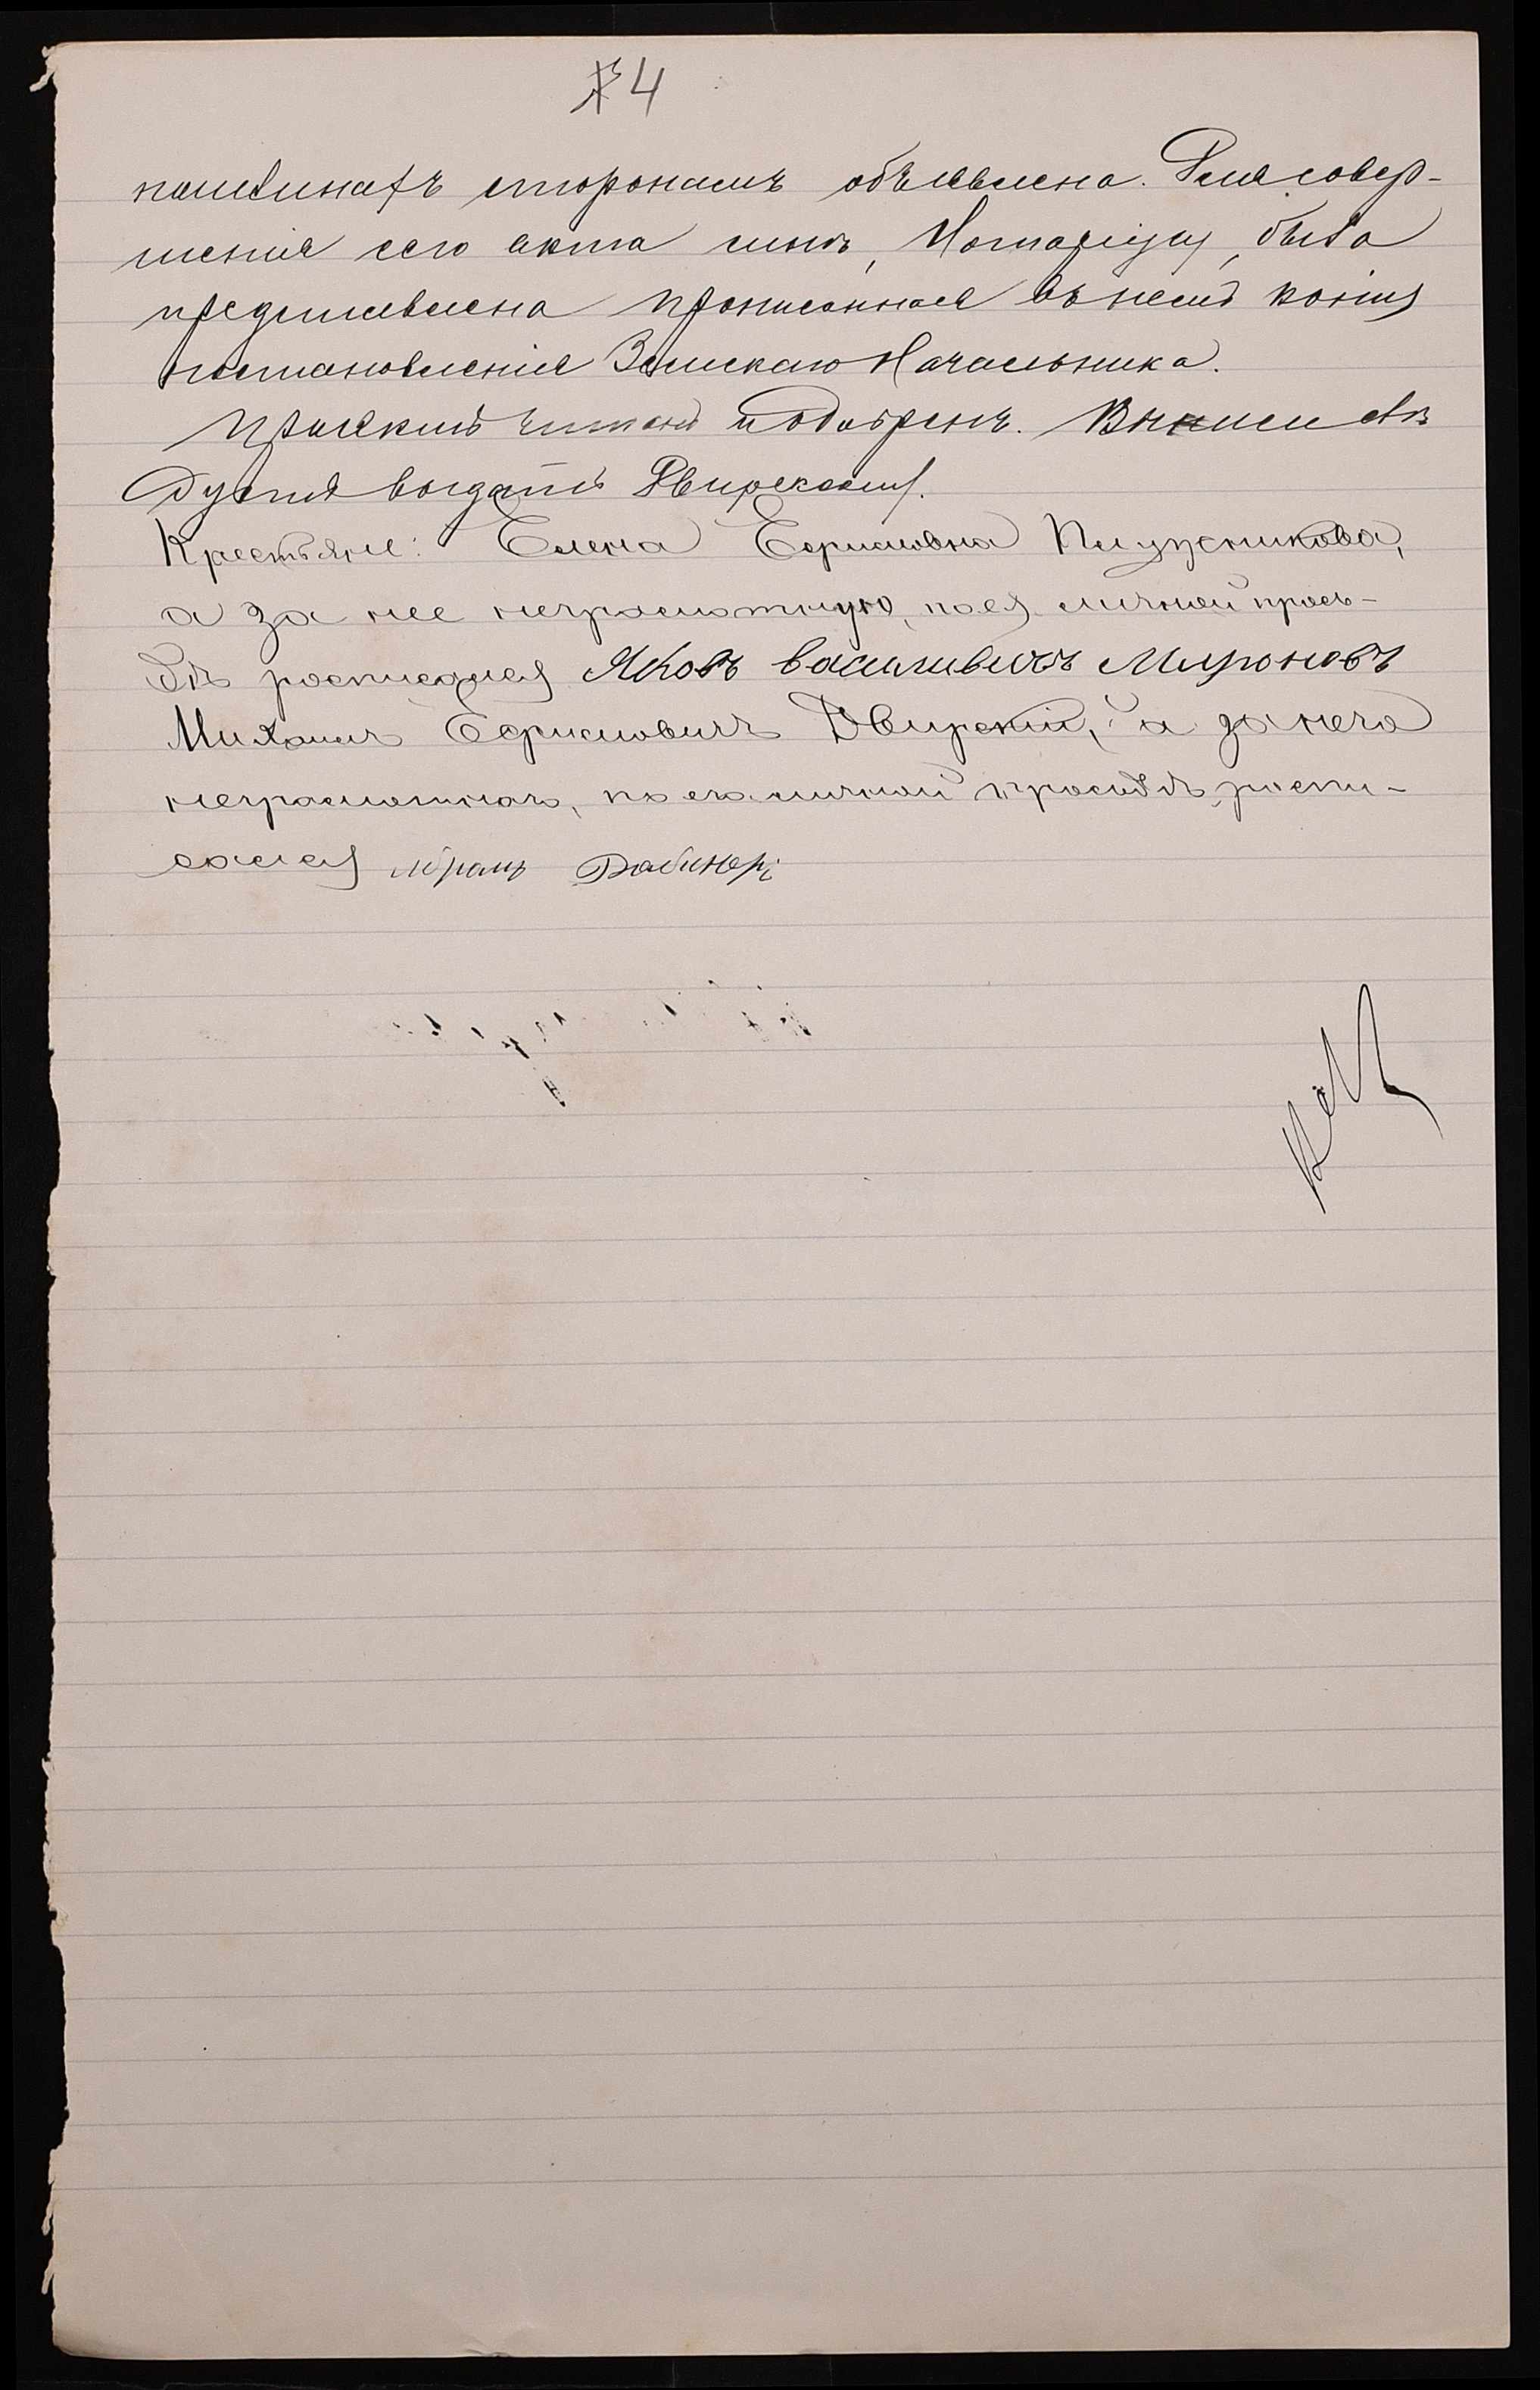 4
пошлинахъ сторонамъ объявлена. Для совер-
шенія сего акта мнѣ, Нотаріусу, была
представлена прописанная въ немъ копія
постановленія Земскаго Начальника.
Проектъ читанъ и одобренъ. Выпись слѣ
дуетъ выдать Двирскому.
Крестьяне: Елена Ефимовна Плужникова,
а за нее неграмотную, по ея личной прось-
бѣ росписался Яковъ васильивичъ Мироновъ
Михаилъ Ефимовичъ Двирскій, а за него
неграмотнаго, по его личной просьбѣ, роспи-
сался Абрамъ